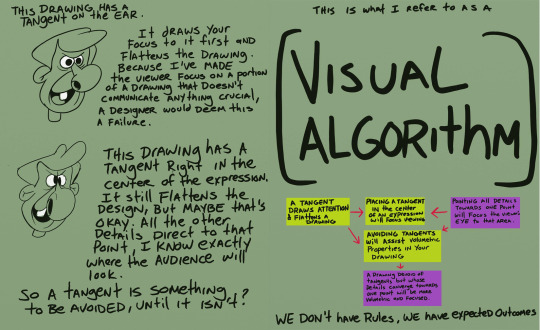 THIS DRAWING HAS A
TANGENT ON THE EAR.
IT DRAWS YOUR
FOCUS TO IT FIRST AND
FLATTENS THE DRAWING.
BECAUSE I'VE MADE
THE VIEWER FOCUS ON A PORTION
OF A DRAWING THAT DOESN'T
COMMUNICATE ANYTHING CRUCIAL,
A DESIGNER WOULD DEEM THIS
A FAILURE.
THIS DRAWING HAS A
TANGENT RIGHT IN THE
CENTER OF THE EXPRESSION.
IT STILL FLATTENS THE
DESIGN, BUT MAYBE THAT'S
OKAY. ALL THE OTHER
DETAILS DIRECT TO THAT
POINT, I KNOW EXACTLY
WHERE THE AUDIENCE WILL
LOOK.
SO A TANGENT IS SOMETHING
TO BE AVOIDED, UNTIL IT ISN'T?
THIS IS WHAT I REFER TO AS A
VISUAL
ALGORITHM
A TANGENT
DRAWS ATTENTION
& FLATTENS A
DRAWING
PLACING A TANGENT
IN THE CENTER
OF AN EXPRESSION
WILL FOCUS VIEWING
POINTING ALL DETAILS
TOWARDS ONE POINT
WILL FOCUS THE VIEWERS
EYE TO THAT AREA.
AVOIDING TANGENTS
WILL ASSIST VOLUMETRIC
PROPERTIES IN YOUR
DRAWING
A DRAWING DEVOID OF
TANGENTS BUT WHOSE
DETAILS CONVERGE TOWARDS
ONE POINT WILL BE MORE
VOLUMETRIC AND FOCUSED.
WE DON'T HAVE RULES, WE HAVE EXPECTED OUTCOMES